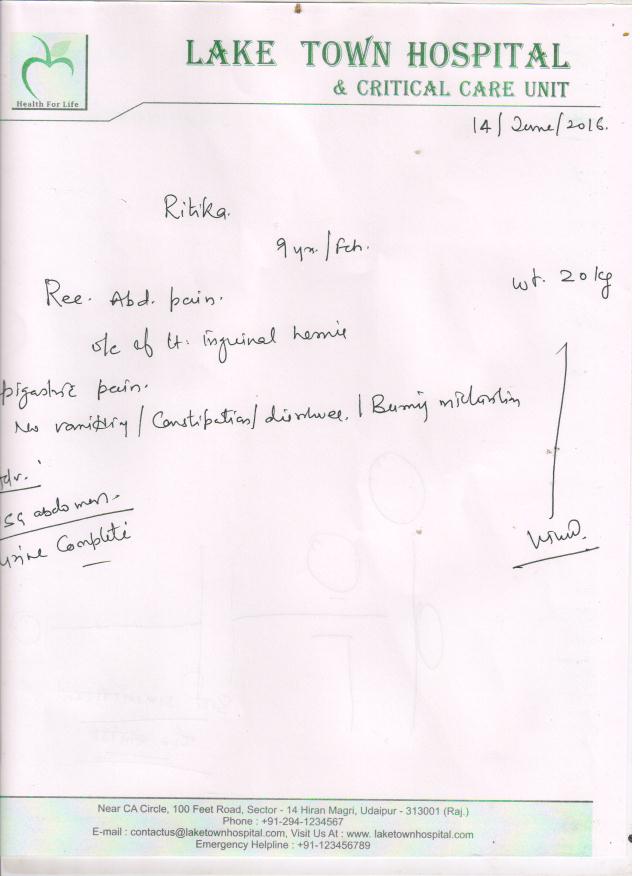 Health For Life
LAKE TOWN HOSPITAL
& CRITICAL CARE UNIT
14/June/2016.
Ritika.
9 yr./Fch.
wt. 20 kg
Rec. Abd. pain.
o/c of Lt. inguinal hernia
pigastric pain.
No vomiting / Constipation / diarrhoea. / Burning micturition
Adv.
SG abdomen.
Urine Complete
Near CA Circle, 100 Feet Road, Sector - 14 Hiran Magri, Udaipur - 313001 (Raj.)
Phone : +91-294-1234567
E-mail : contactus@laketownhospital.com, Visit Us At : www. laketownhospital.com
Emergency Helpline : +91-123456789